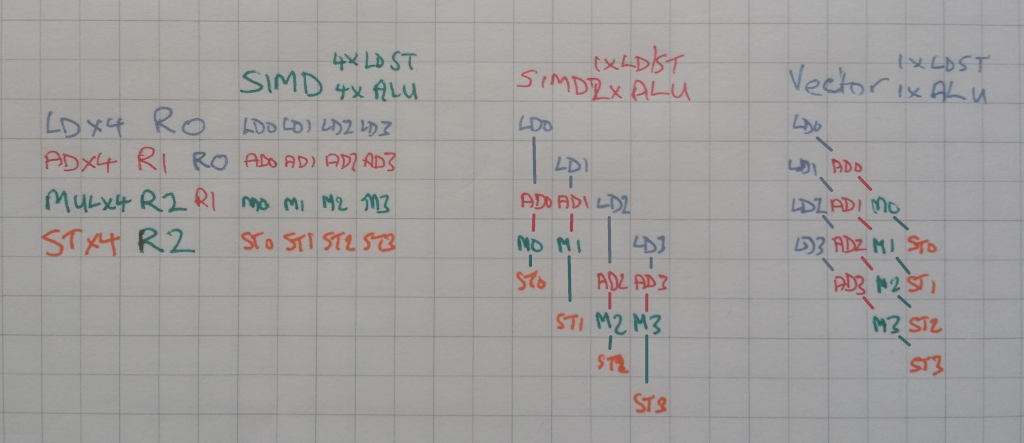 SIMD 4xLDST 4xALU
LDx4 R0 LD0 LD1 LD2 LD3
ADx4 R1 R0 AD0 AD1 AD2 AD3
MULx4 R2 R1 M0 M1 M2 M3
STx4 R2 ST0 ST1 ST2 ST3
SIMD 1xLD/ST 2xALU
LD0
LD1
AD0 AD1 LD2
M0 M1 LD3
ST0 AD2 AD3
ST1 M2 M3
ST2
ST3
Vector 1xLDST 1xALU
LD0
LD1 AD0
LD2 AD1 M0
LD3 AD2 M1 ST0
AD3 M2 ST1
M3 ST2
ST3